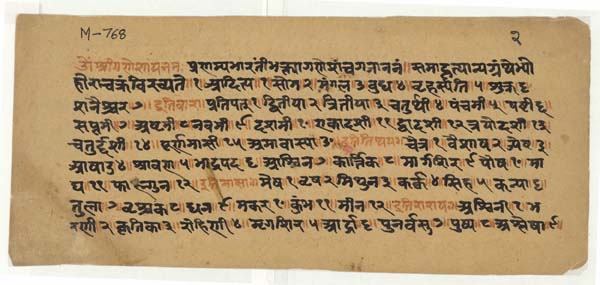 M-768
२
ॐ श्रीगणेशाय नमः प्रणम्य भारतीं भक्त्या गणेशं च गजाननं ॥ समाहृत्यान्यग्रंथेभ्यो
होराचक्रं विरच्यते १ आदित्य १ सोम २ मंगल ३ बुध ४ बृहस्पति ५ शुक्र ६
शनैश्चर ७ इतिवाराः प्रतिपत् १ द्वितीया २ त्रितीया ३ चतुर्थी ४ पंचमी ५ षष्टी ६
सप्तमी ७ अष्टमी ८ नवमी ९ दशमी १० एकादशी ११ द्वादशी १२ त्रयोदशी १३
चतुर्दशी १४ पूर्णमासी १५ अमावास्या ३० इतितिथयः चैत्र १ वैशाष २ ज्येष्ठ ३
आषाढ ४ श्रावण ५ भाद्रपद ६ अश्विन ७ कार्त्तिक ८ मार्गशिर ९ पौष १० मा
घ ११ फाल्गुन १२ इतिमासाः मेष १ वृष २ मिथुन ३ कर्क ४ सिंह ५ कन्या ६
तुला ७ वृश्चिक ८ धन ९ मकर १० कुंभ ११ मीन १२ इतिराशयः अश्विनी १ भ
रणी २ कृतिका ३ रोहिणी ४ मृगशिर ५ आर्द्रा ६ पुनर्वसु ७ पुष्य ८ अश्लेषा ९